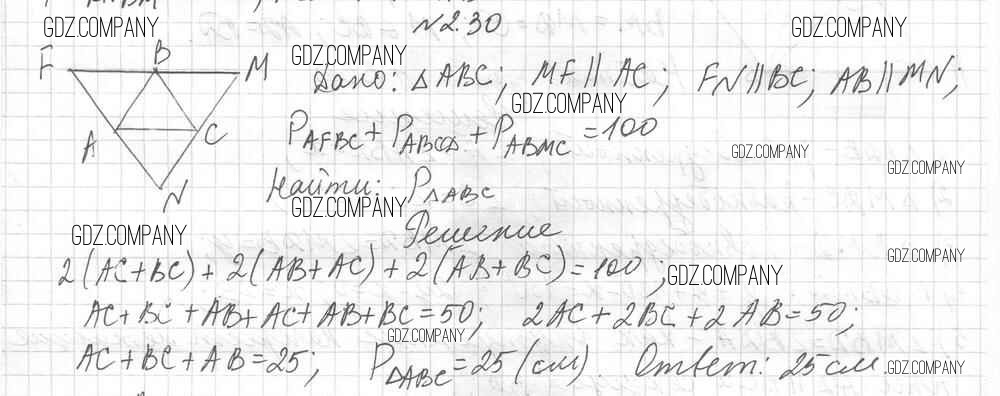 N2.30
GDZ.COMPANY GDZ.COMPANY
F B M GDZ.COMPANY
Дано: △ABC; MF || AC; FN || BC; AB || MN;
GDZ.COMPANY
P_AFBC + P_ABC + P_ABMC = 100
A C GDZ.COMPANY
GDZ.COMPANY
Найти: P_△ABC
N GDZ.COMPANY
GDZ.COMPANY Решение
2(AC+BC) + 2(AB+AC) + 2(AB+BC) = 100; GDZ.COMPANY
GDZ.COMPANY
AC + BC + AB + AC + AB + BC = 50; 2AC + 2BC + 2AB = 50;
GDZ.COMPANY
AC + BC + AB = 25; P_△ABC = 25 (см). Ответ: 25 см.
GDZ.COMPANY